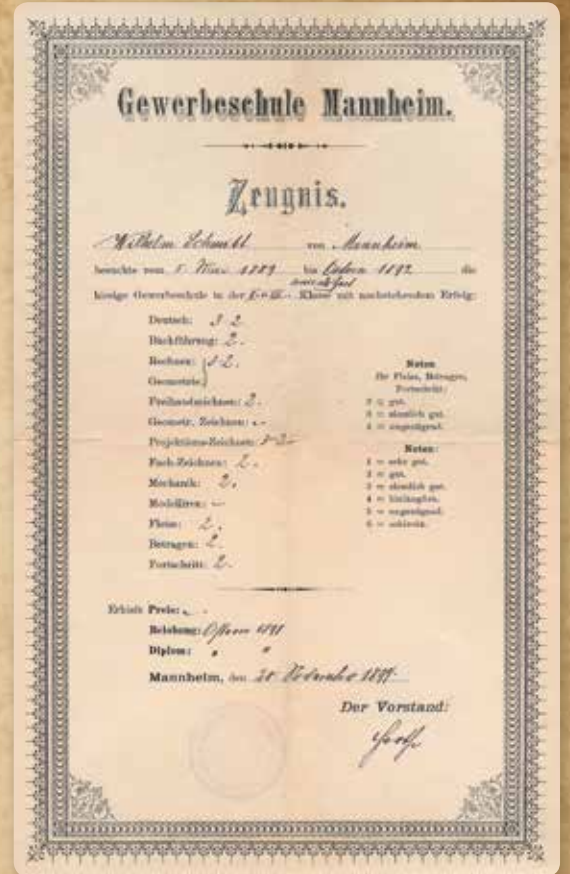 Gewerbeschule Mannheim.
Zeugnis.
Wilhelm Schmitt von Mannheim
besuchte vom 1. Mai 1889 bis Ostern 1892 die
hiesige Gewerbeschule in der Klasse mit nachstehendem Erfolg:
Deutsch: 3-2
Buchführung: 2.
Rechnen:
Geometrie:
Freihandzeichnen: 2.
Geometr. Zeichnen: -
Projektions-Zeichnen:
Fach-Zeichnen: 2.
Mechanik: 2.
Modelliren: -
Fleiss: 2.
Betragen: 2.
Fortschritt: 2.
Noten
für Fleiss, Betragen,
Fortschritt:
= gut.
= ziemlich gut.
= ungenügend.
Noten:
1 = sehr gut.
2 = gut.
3 = ziemlich gut.
4 = hinlänglich.
5 = ungenügend.
6 = schlecht.
Erhielt Preis:
Belobung: Ostern 1891
Diplom: " "
Mannheim, den
Der Vorstand: